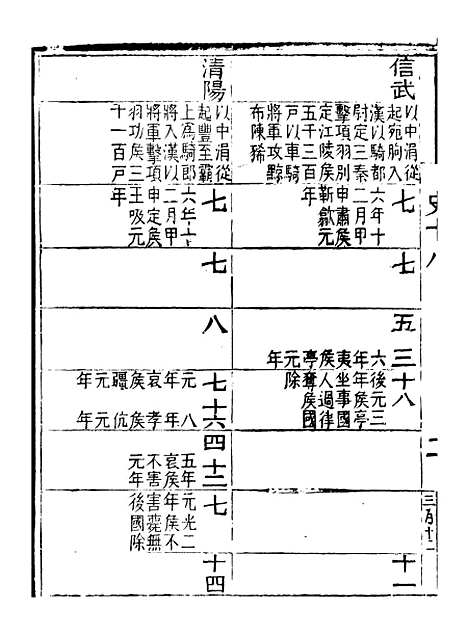 史十八
二
信武
以中涓從
起宛朐入
漢以騎都
尉定三秦
擊項羽別
定江陵侯
五千三百
戶以車騎
將軍攻黥
布陳豨
七
六年十
二月甲
申肅侯
靳歙元
年
七
五
三
十八
六後元三
年年侯亭
夷坐事國
侯人過律
亭奪侯國
元除
年
十一
清陽
以中涓從
起豐至霸
上爲騎郎
將入漢以
將軍擊項
羽功侯三
十一百戶
七
六年十二
月甲
申定侯
王吸元
年
七
八
七
元年哀侯彊元年
十六
八年孝侯伉元年
四
五年
哀侯
不害
元年
十二
元光二
年侯不
害薨無
後國除
七
十四